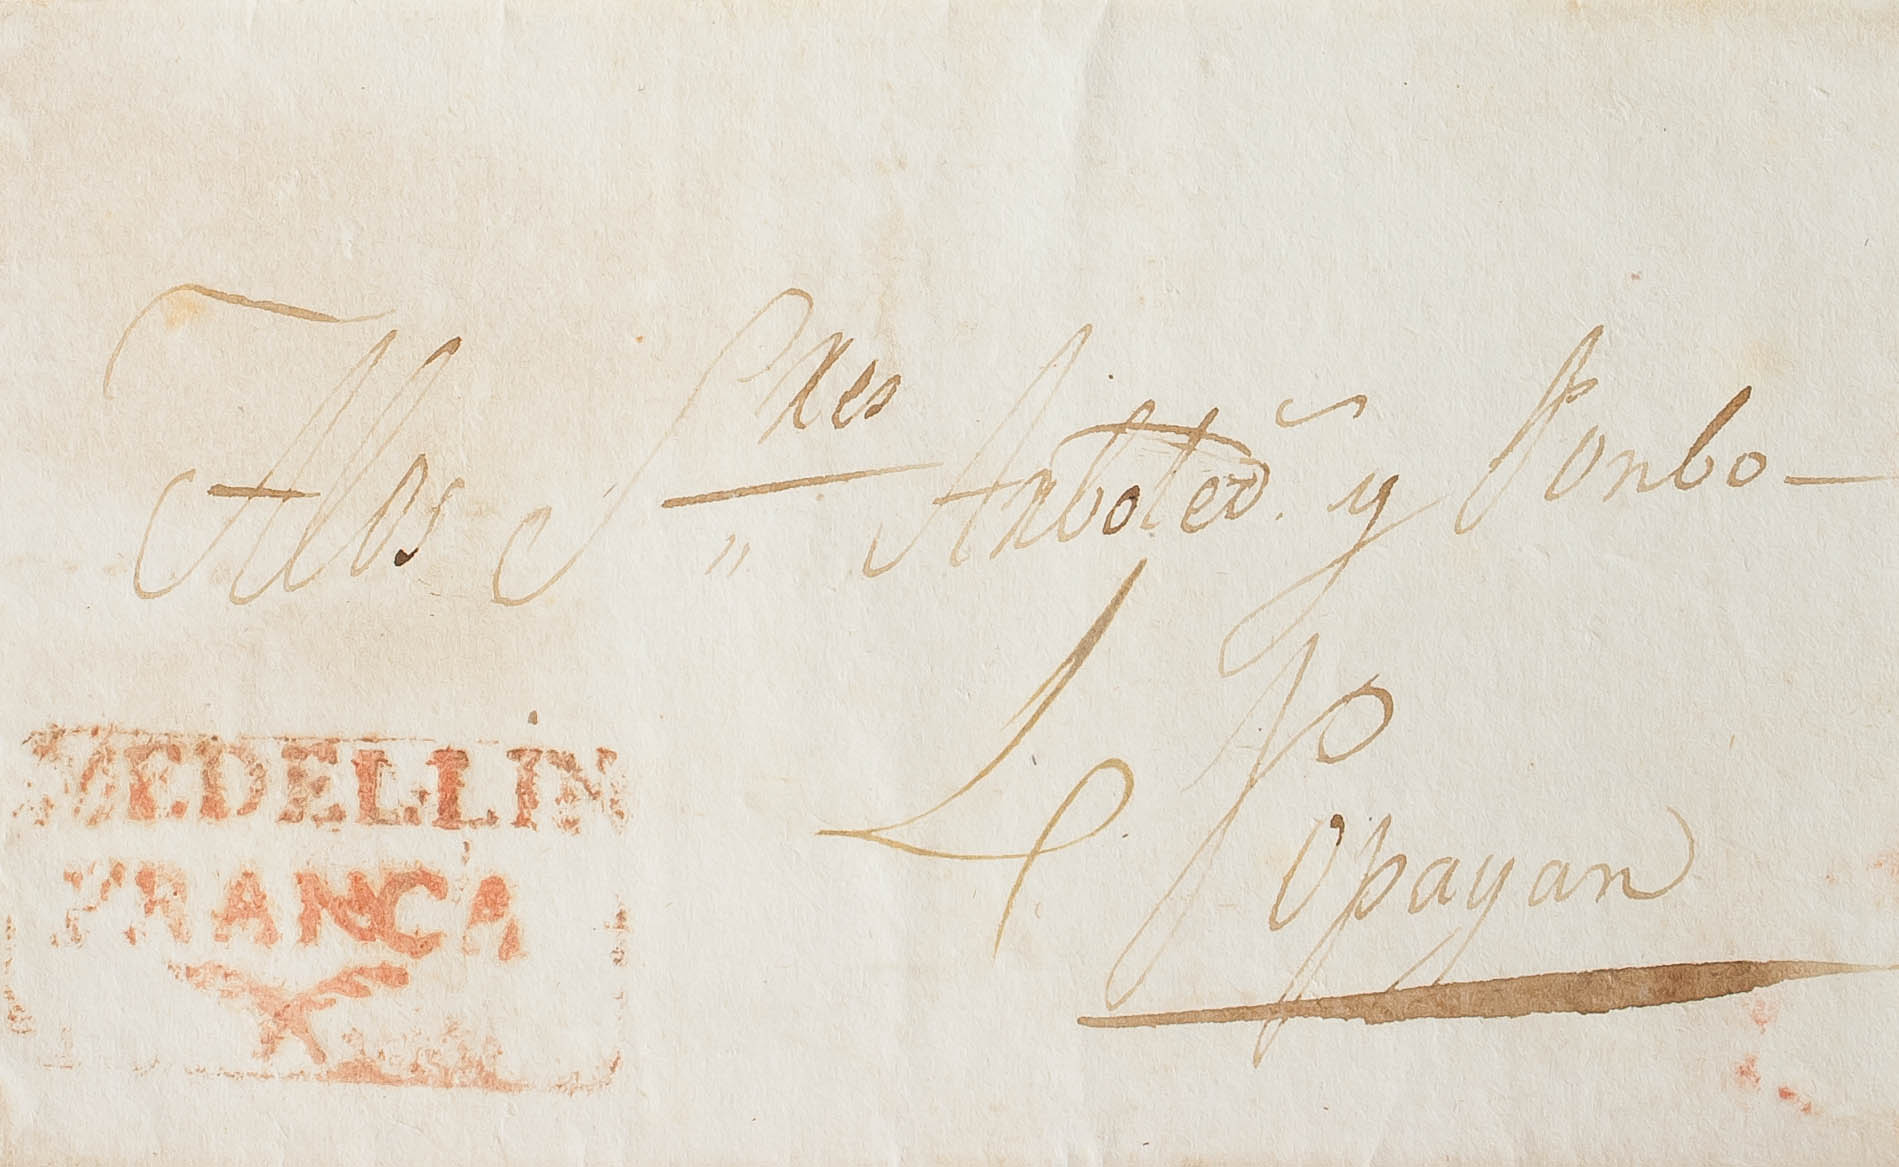 A los S.res Arboled.a y Ponbo—
Popayan
MEDELLIN
FRANCA